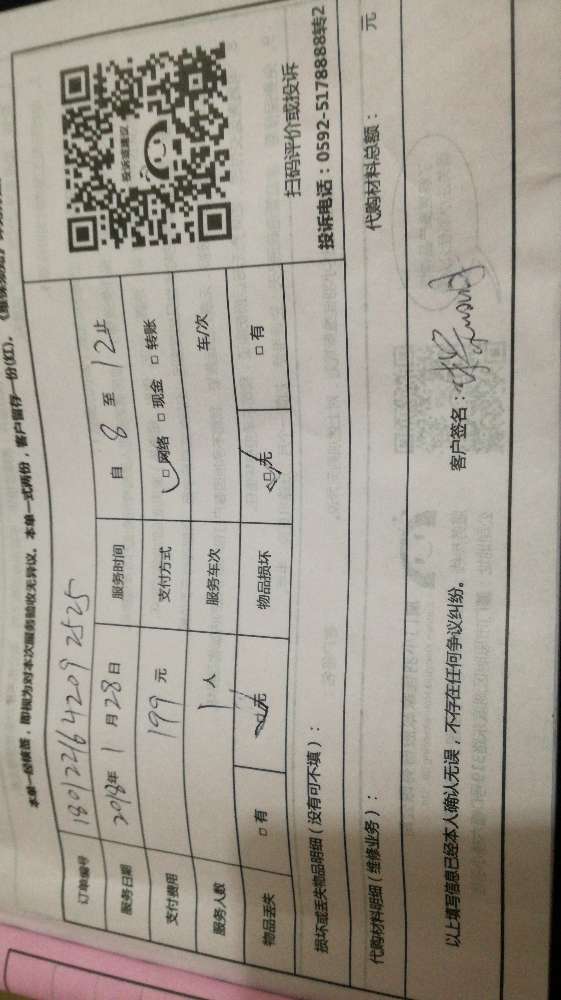 本单一经核签，即视为对本次服务验收无异议。本单一式两份，客户留存一份(红)。
订单编号 180122164209 2525
服务日期 2018年 1 月 28 日 服务时间 自 8 至 12 止
支付费用 199 元 支付方式 □ 网络 □ 现金 □ 转账
服务人数 1 人 服务车次 车/次
物品丢失 □ 有 □ 无 物品损坏 □ 无 □ 有
投诉或建议
扫码评价或投诉
投诉电话：0592-5178888转2
损坏或丢失物品明细（没有可不填）：
代购材料明细（维修业务）： 代购材料总额： 元
以上填写信息已经本人确认无误，不存在任何争议纠纷。 客户签名：